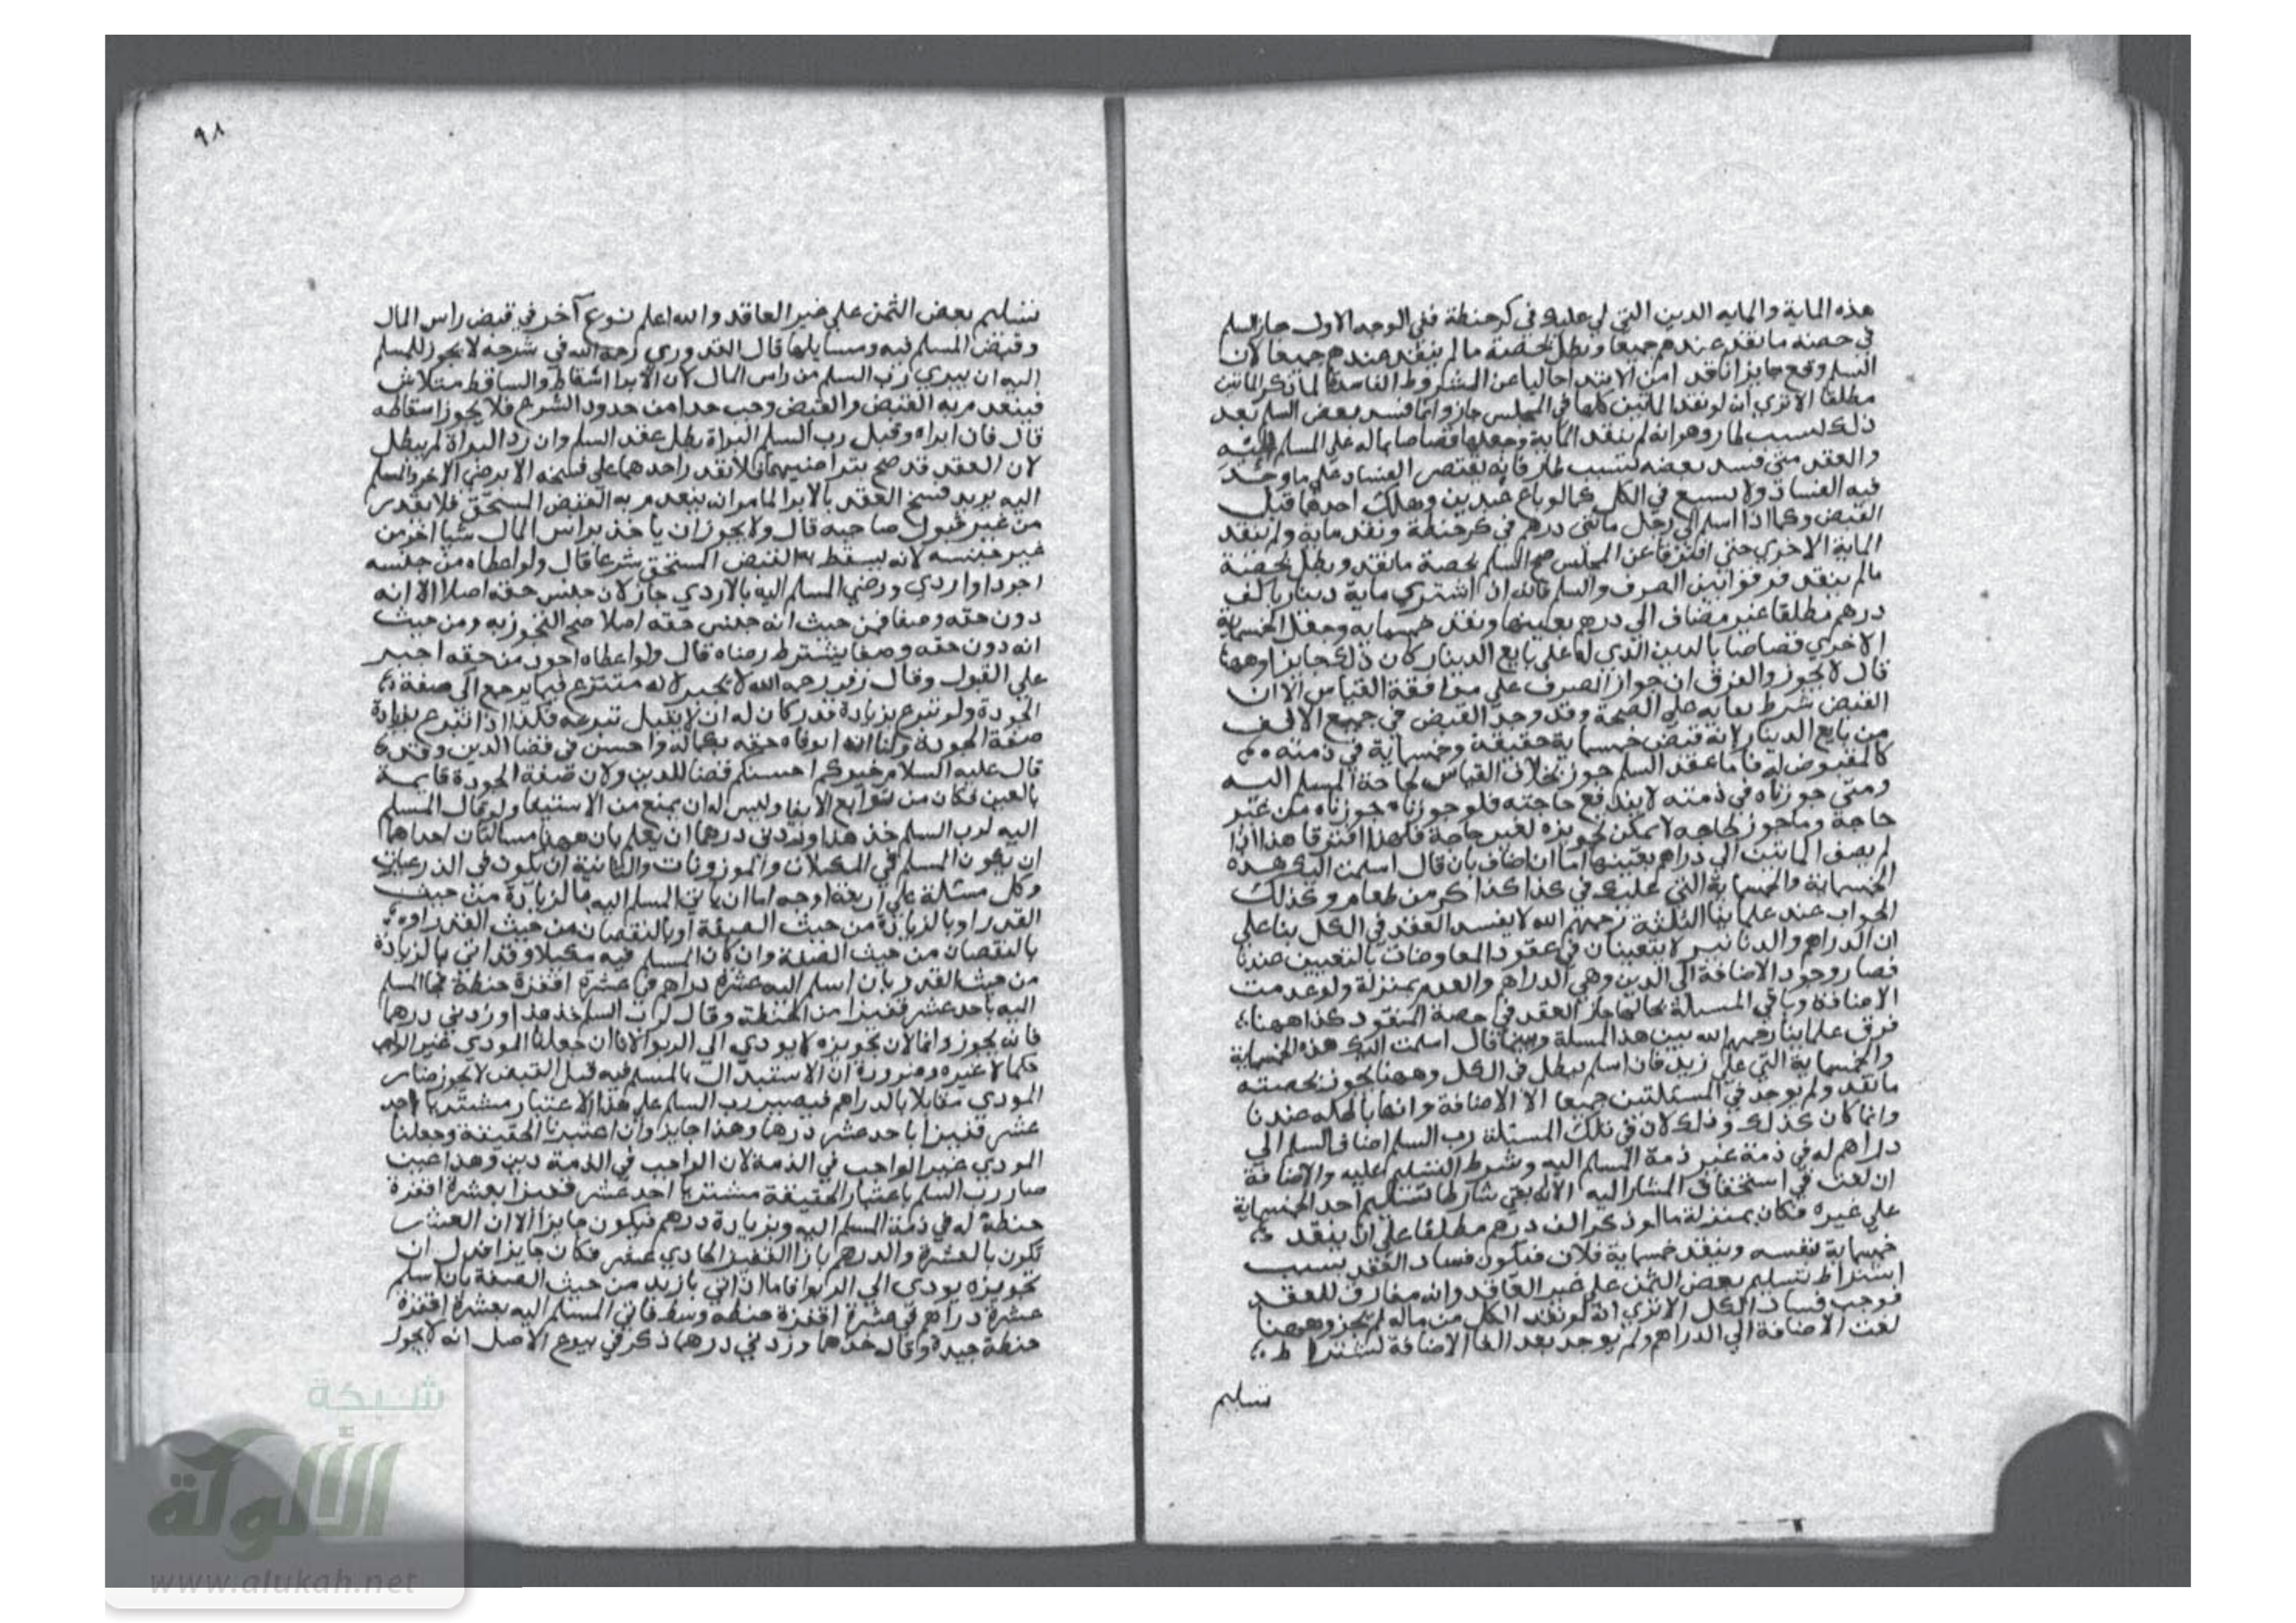 هذه الماية والمايه الدين التي لي عليك في كرحنطة ففي الوجه الاول جاز السلم
في حصته ما نقد عندهم جميعا وبطل بحصة ما لم ينقد عندهم جميعا لان
السلم وقع جايزا نافذا من الابتداء خاليا عن الشروط الفاسدة لما ذكر المايتين
مطلقا الا تري انه لو نقد المايتين كلها في المجلس جاز وانما فسد بعض السلم بعد
ذلك لسبب طار وهو انه لم ينقد الماية وجعلها قصاصا بماله علي المسلم اليه
والعقد متي فسد بعضه لسبب طار فانه يقتصر الفساد علي ما وجد
فيه الفساد ولا يسيع في الكل كما لو باع عبدين وهلك احدها قبل
القبض وكما اذا اسلم الي رجل مائتي درهم في كر حنطة ونقد ماية ولم ينقد
الماية الاخري حتي افترقا عن المجلس صح السلم بحصة ما نقد وبطل بحصة
مالم ينقد فرقوا بين الصرف والسلم فانه ان اشتري ماية دينار بالف
درهم مطلقا غير مضاف الي درهم بعينها ونقد خمسمايه وجعل الخمسماية
الاخري قصاصا بالدين الذي له علي بايع الدينار كان ذلك جايزا وههنا
قال لا يجوز والفرق ان جواز الصرف علي موافقة القياس الا ان
القبض شرط بقايه علي الصحة وقد وجد القبض في جميع الالف
من بايع الدينار لانه قبض خمسماية حقيقة وخمسماية في ذمته
كالمقبوض له فاما عقد السلم جوز بخلاف القياس لحاجة المسلم اليه
ومتي جوزناه في ذمته لا يندفع حاجته فلو جوزناه جوزناه من غير
حاجة وما جوز لحاجه لا يمكن تجويزه لغير حاجة فلهذا افترقا هذا اذا
لم يضف المايتين الي دراهم بعينها اما ان اضاف بان قال اسلمت اليك هذه
الخمسماية والخمسماية التي عليك في كذا كذا كر من طعام وكذلك
الجواب عند علماينا الثلثة رحمهم الله لا يفسد العقد في الكل بناعلي
ان الدراهم والدنانير لا يتعينان في عقود المعاوضات بالتعيين عندنا
فصار وجود الاضافة الي الدين وهي الدراهم والعدم بمنزلة ولو عدمت
الاضافة وباقي المسلة بحالها جاز العقد في حصة المنقود كذا ههنا
فرق علماينا رحمهم الله بين هذا المسلة وبينما قال اسلمت اليك هذه الخمسماية
والخمسماية التي علي زيد فان اسلم يبطل في الكل وههنا يجوز بحصته
ما نقد ولم يوجد في المسئلتين جميعا الا الاضافة وانها باطله عندنا
وانما كان كذلك وذلك لان في تلك المسئلة رب السلم اضاف السلم الي
دراهم له في ذمة غير ذمة المسلم اليه وشرط التسليم عليه والاضافة
ان لغت في استحقاق المشار اليه الا انه بقي شارطا لتسليم احد الخمسماية
علي غيره فكان بمنزلة ما لو ذكر الف درهم مطلقا علي ان ينقد
خمسماية بنفسه وينقد خمسماية فلان فيكون فساد العقد بسبب
اشتراط تسليم بعض الثمن علي غير العاقد وانه مقارن للعقد
فوجب فساد الكل الا تري انه لو نقد الكل من ماله لم يجز وههنا
لغت الاضافة الي الدراهم ولم يوجد بعد الغا الاضافة لشتراط
تسليم
٩٨
تسليم بعض الثمن علي غير العاقد والله اعلم نوع آخر في قبض راس المال
وقبض المسلم فيه ومسايلها قال القدوري رحمه الله في شرحه لا يجوز للمسلم
اليه ان يبري رب السلم من راس المال لان الابرا اسقاط والساقط متلاش
فينعدم به القبض والقبض وجب حدا من حدود الشرع فلا يجوز اسقاطه
قال فان ابراه وقبل رب السلم البراة بطل عقد السلم وان رد البراة لم يبطل
لان العقد قد صح بتراضيهما فلا ينفرد احدهما علي فسخه الا برضي الاخر والمسلم
اليه يريد فسخ العقد بالابرا لما مر ان ينعدم به القبض المستحق فلا يقدر
من غير قبول صاحبه قال ولا يجوز ان ياخذ براس المال شيا اخر من
غير جنسه لانه يسقط به القبض المستحق شرعا قال ولو اعطاه من جنسه
اجود او اردي ورضي المسلم اليه بالاردي جاز لان جنس حقه اصلا الا انه
دون حقه وصفا فمن حيث انه جنس حقه اصلا صح التجوز به ومن حيث
انه دون حقه وصفا يشترط رضاه قال ولو اعطاه اجود من حقه اجبر
علي القبول وقال زفر رحمه الله لا يجبر لانه متبرع فيما يرجع الي صفة
الجودة ولو تبرع بزيادة قدر كان له ان لا يقبل تبرعه فكذا اذا تبرع بزيادة
صفة الجودة ولنا انه ايوفاه حقه بكماله واحسن في قضا الدين وقد
قال عليه السلام خيركم احسنكم قضا للدين ولان صفة الجودة قايمة
بالعين فكان من توابع الايفا وليس له ان يمنع من الاستيفا ولو قال المسلم
اليه لرب السلم خذ هذا وزدني درهما ان يعلم بان ههنا مسالتان احداهما
ان يكون المسلم في المكيلات والموزونات والثانية ان تكون في الذرعيات
وكل مسئلة علي اربعة اوجه اما ان ياتي المسلم اليه بالزيادة من حيث
القدر او بالزيادة من حيث الصفة او بالنقصان من حيث القدر او
بالنقصان من حيث الصفة وان كان المسلم فيه مكيلا وقد اتي بالزيادة
من حيث القدر بان اسلم اليه عشرة دراهم في عشرة اقفزة حنطة فجا المسلم
اليه باحد عشر قفيزا من الحنطة وقال لرب السلم خذ هذا وزدني درهما
فانه يجوز وانما لان تجويزه لا يودي الي الربوا لانا ان جعلنا المودي غير الواجب
حكما لا غيره وضرورة ان الاستبدال بالمسلم فيه قبل القبض لا يجوز صار
المودي مقابلا بالدراهم فيصير رب السلم علي هذا الاعتبار مشتريا احد
عشر قفيزا باحد عشر درهما وهذا جايز وان اعتبرنا الحقيقة وجعلنا
المودي غير الواجب في الذمة لان الواجب في الذمة دين وهذا عين
صار رب السلم باعتبار الحقيقة مشتريا احد عشر قفيزا بعشرة اقفزة
حنطة له في ذمة المسلم اليه وبزيادة درهم فيكون جايزا الا ان العشر
تكون بالعشرة والدرهم بازا القفيز الحادي عشر فكان جايزا فدل ان
تجويزه يودي الي الربوا فاما ان اتي بازيد من حيث الصفة بان اسلم
عشرة دراهم في عشرة اقفزة حنطه وسط فاتي المسلم اليه بعشرة اقفزة
حنطة جيدة وقال خذها وزدني درهما ذكر في بيوع الاصل انه لا يجوز
شبكة
الألوكة
www.alukah.net